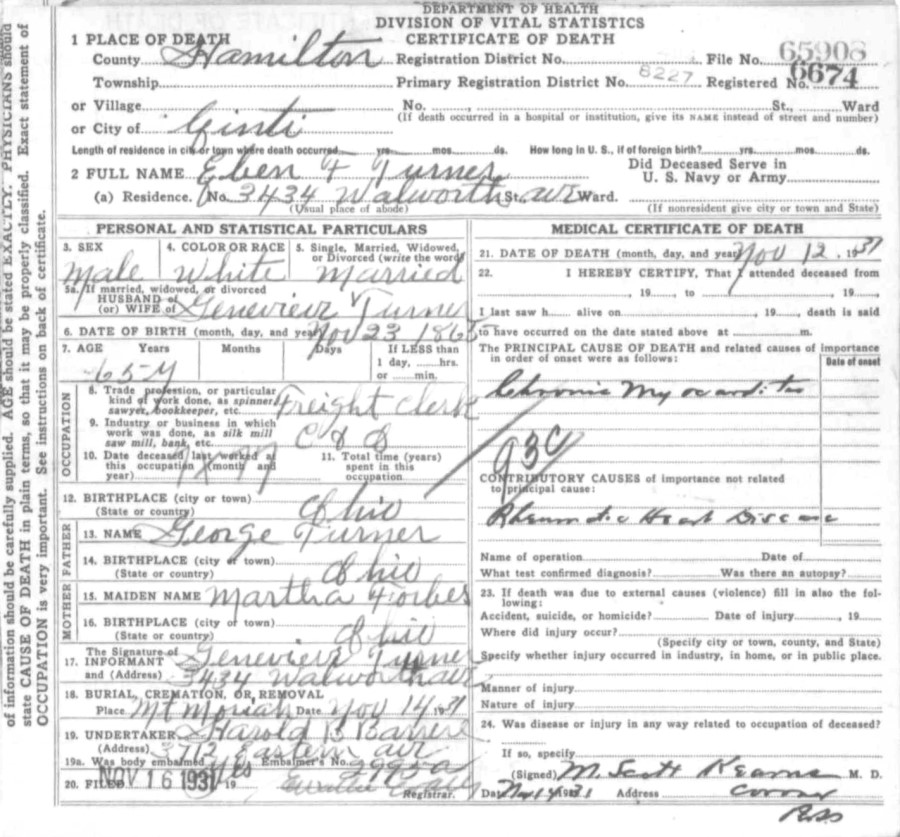 DEPARTMENT OF HEALTH
DIVISION OF VITAL STATISTICS
CERTIFICATE OF DEATH
1 PLACE OF DEATH
County Hamilton Registration District No. File No. 65908
Township Primary Registration District No. 8227 Registered No. 6674
or Village No. , St., Ward
(If death occurred in a hospital or institution, give its NAME instead of street and number)
or City of Cinti
Length of residence in city or town where death occurred yrs. mos. ds. How long in U. S., if of foreign birth? yrs. mos. ds.
2 FULL NAME Eben F Turner Did Deceased Serve in U. S. Navy or Army
(a) Residence. No. 3434 Walworth St. ave Ward.
(Usual place of abode) (If nonresident give city or town and State)
PERSONAL AND STATISTICAL PARTICULARS
3. SEX 4. COLOR OR RACE 5. Single, Married, Widowed, or Divorced (write the word)
Male White Married
5a. If married, widowed, or divorced
HUSBAND of
(or) WIFE of Genevieve Turner
6. DATE OF BIRTH (month, day, and year) Nov 23 1865
7. AGE Years Months Days If LESS than
1 day, hrs.
or min.
65-y
OCCUPATION
8. Trade profession, or particular
kind of work done, as spinner, Freight Clerk
sawyer, bookkeeper, etc.
9. Industry or business in which
work was done, as silk mill
saw mill, bank, etc. C & O
10. Date deceased last worked at
this occupation (month and
year)
11. Total time (years)
spent in this
occupation
12. BIRTHPLACE (city or town)
(State or country) Ohio
FATHER
13. NAME George Turner
14. BIRTHPLACE (city or town)
(State or country) Ohio
MOTHER
15. MAIDEN NAME Martha Forbes
16. BIRTHPLACE (city or town)
(State or country) Ohio
The Signature of
17. INFORMANT Genevieve Turner
and (Address) 3434 Walworth ave
18. BURIAL, CREMATION, OR REMOVAL
Place Mt Moriah Date Nov 14 1931
19. UNDERTAKER Harold B Barrere
(Address) 3712 Eastern ave
19a. Was body embalmed yes Embalmer's No.
20. FILED NOV 16 1931 19
Registrar.
MEDICAL CERTIFICATE OF DEATH
21. DATE OF DEATH (month, day, and year) Nov 12. 1931
22. I HEREBY CERTIFY, That I attended deceased from
, 19 , to , 19 ,
I last saw h alive on , 19 , death is said
to have occurred on the date stated above at m.
The PRINCIPAL CAUSE OF DEATH and related causes of importance
in order of onset were as follows:
Date of onset
Chronic Myocarditis
93C
CONTRIBUTORY CAUSES of importance not related
to principal cause:
Rheumatic Heart Disease
Name of operation Date of
What test confirmed diagnosis? Was there an autopsy?
23. If death was due to external causes (violence) fill in also the fol-
lowing:
Accident, suicide, or homicide? Date of injury , 19
Where did injury occur?
(Specify city or town, county, and State)
Specify whether injury occurred in industry, in home, or in public place.
Manner of injury
Nature of injury
24. Was disease or injury in any way related to occupation of deceased?
If so, specify
(Signed) M. Scott Kearns M. D.
Date Nov 1931 Address Coroner
of information should be carefully supplied. AGE should be stated EXACTLY. PHYSICIANS should
state CAUSE OF DEATH in plain terms, so that it may be properly classified. Exact statement of
OCCUPATION is very important. See instructions on back of certificate.